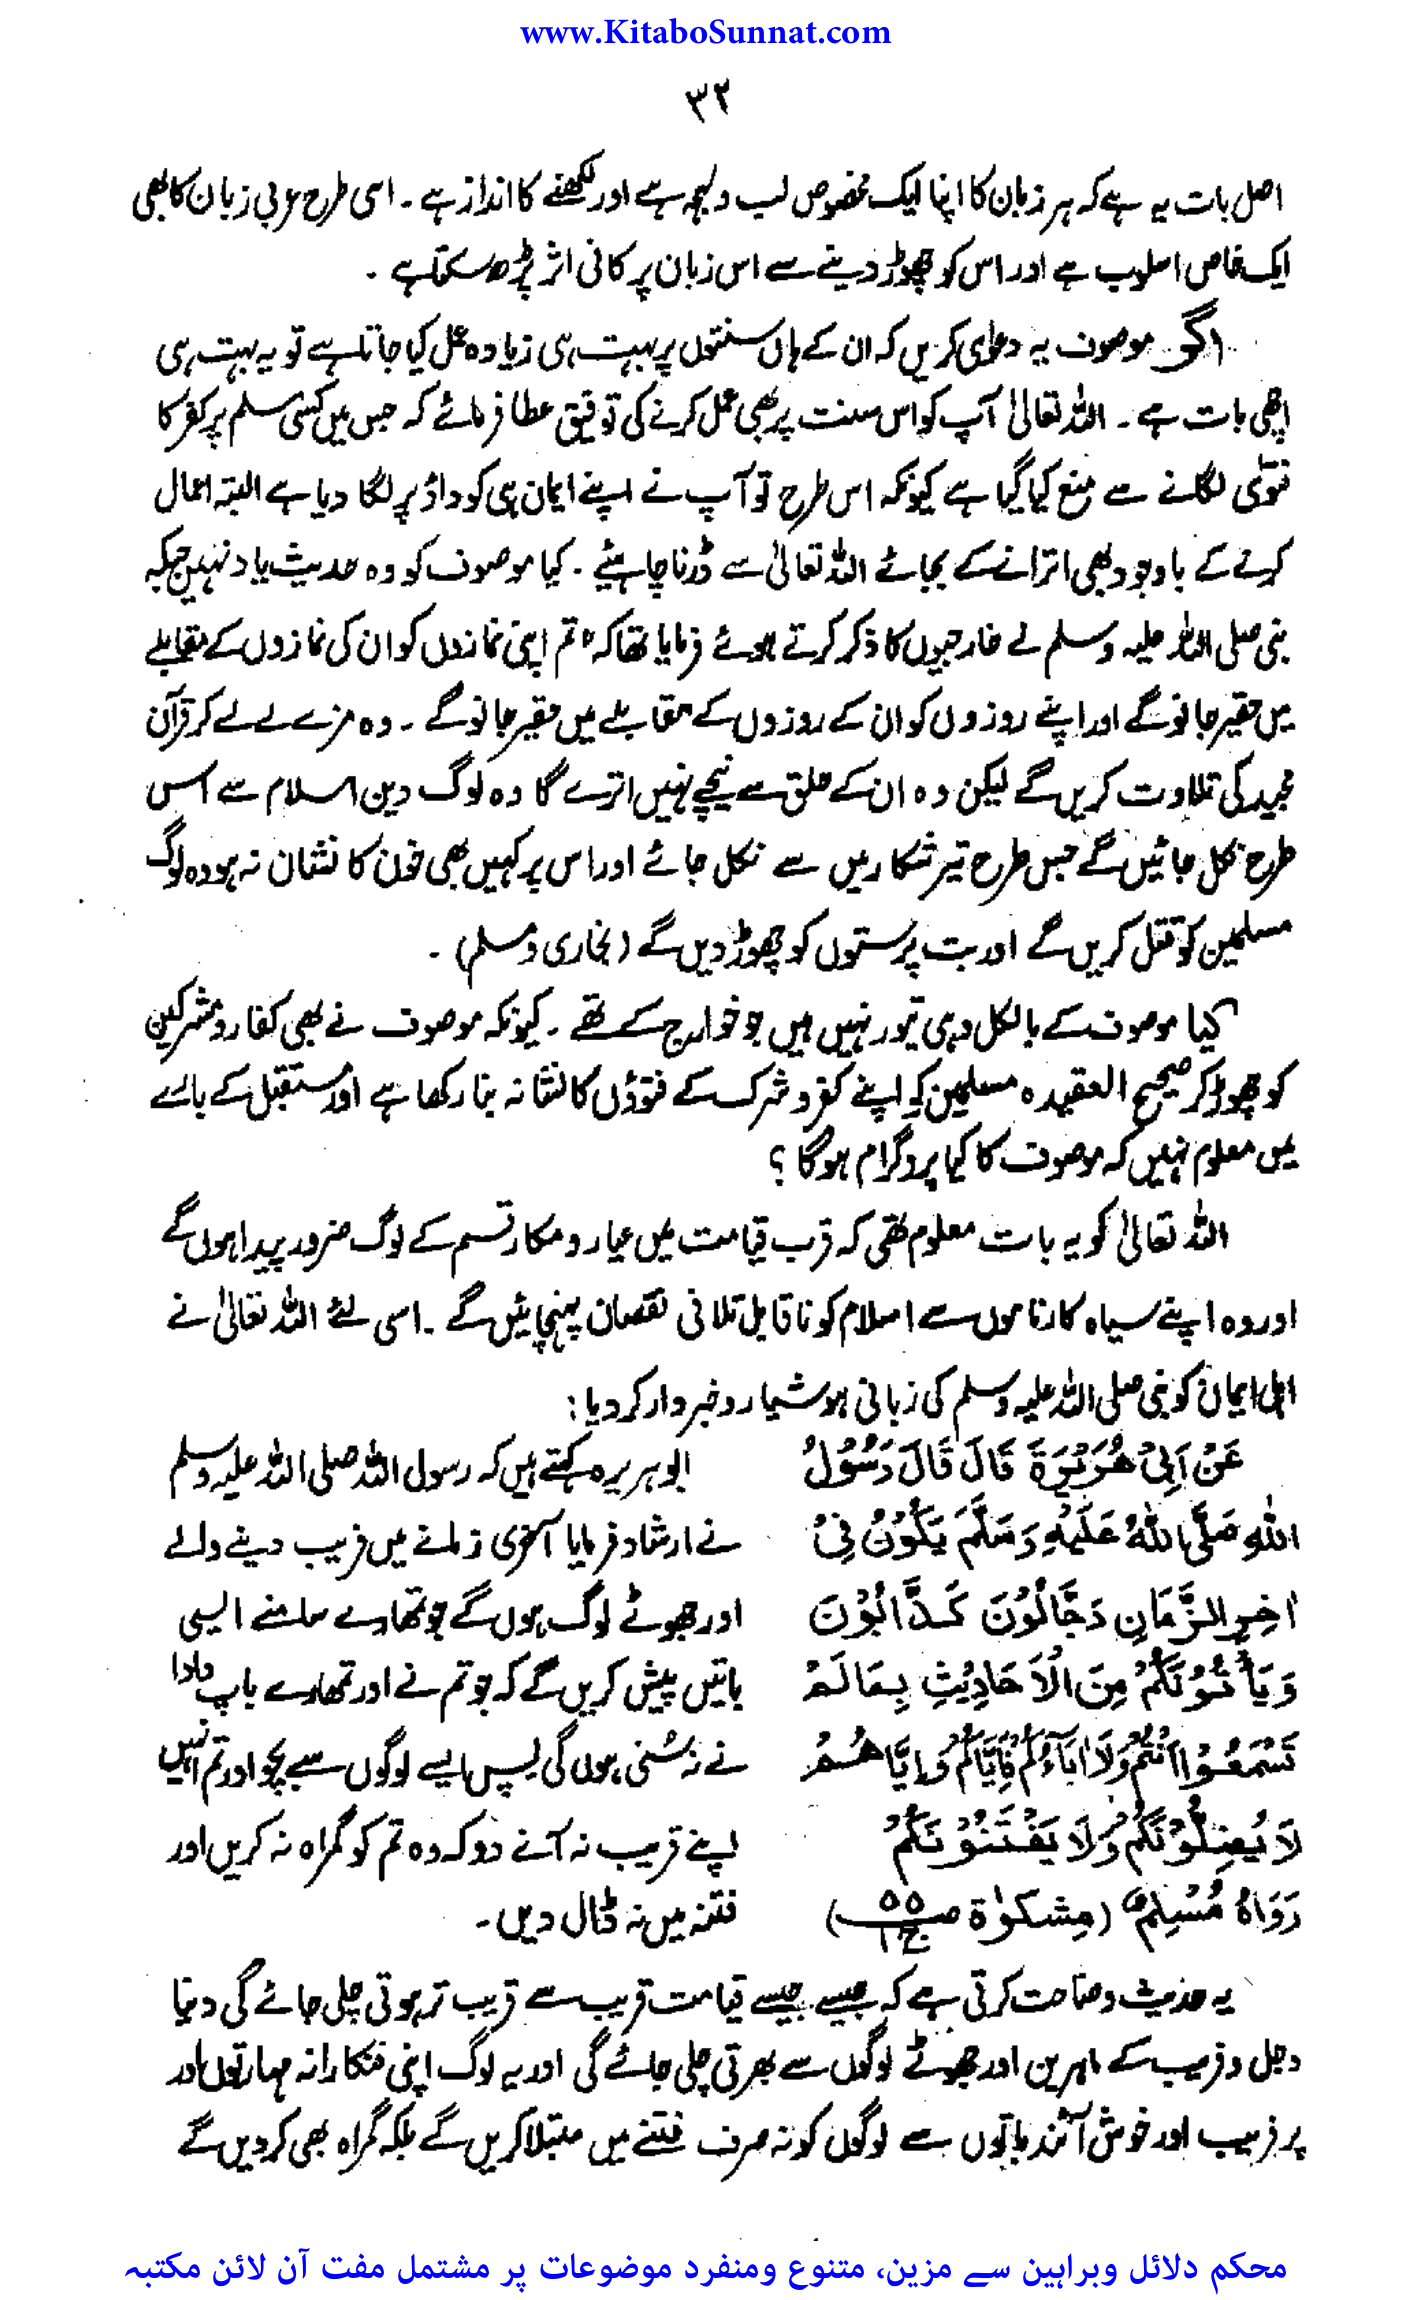 www.KitaboSunnat.com
۳۲
اصل بات یہ ہے کہ ہر زبان کا اپنا ایک مخصوص لب و لہجہ ہے اور لکھنے کا انداز ہے ۔ اسی طرح عربی زبان کا بھی
ایک خاص اسلوب ہے اور اس کو چھوڑ دینے سے اس زبان پر کافی اثر پڑھ سکتا ہے ۔
اگر موصوف یہ دعوٰی کریں کہ ان کے ہاں سنتوں پر بہت ہی زیادہ عمل کیا جاتا ہے تو یہ بہت ہی
اچھی بات ہے ۔ اللہ تعالیٰ آپ کو اس سنت پر بھی عمل کرنے کی توفیق عطا فرمائے کہ جس میں کسی مسلم پر کفر کا
فتویٰ لگانے سے منع کیا گیا ہے کیونکہ اس طرح تو آپ نے اپنے ایمان ہی کو داؤ پر لگا دیا ہے البتہ اعمال
کرنے کے باوجود بھی اترانے کے بجائے اللہ تعالیٰ سے ڈرنا چاہیئے ۔ کیا موصوف کو وہ حدیث یاد نہیں جبکہ
نبی صلی اللہ علیہ وسلم نے خارجیوں کا ذکر کرتے ہوئے فرمایا تھا کہ "تم اپنی نمازوں کو ان کی نمازوں کے مقابلے
میں حقیر جانو گے اور اپنے روزوں کو ان کے روزوں کے مقابلے میں حقیر جانو گے ۔ وہ مزے لے لے کر قرآن
مجید کی تلاوت کریں گے لیکن وہ ان کے حلق سے نیچے نہیں اترے گا وہ لوگ دین اسلام سے اس
طرح نکل جائیں گے جس طرح تیر شکار میں سے نکل جائے اور اس پر کہیں بھی خون کا نشان نہ ہو وہ لوگ
مسلمین کو قتل کریں گے اور بت پرستوں کو چھوڑ دیں گے (بخاری و مسلم) ۔
کیا موصوف کے بالکل وہی تیور نہیں ہیں جو خوارج کے تھے ۔ کیونکہ موصوف نے بھی کفار و مشرکین
کو چھوڑ کر صحیح العقیدہ مسلمین کو اپنے کفر و شرک کے فتوؤں کا نشانہ بنا رکھا ہے اور مستقبل کے بارے
میں معلوم نہیں کہ موصوف کا کیا پروگرام ہو گا ؟
اللہ تعالیٰ کو یہ بات معلوم تھی کہ قرب قیامت میں عیار و مکار قسم کے لوگ ضرور پیدا ہوں گے
اور وہ اپنے سیاہ کارناموں سے اسلام کو ناقابل تلافی نقصان پہنچائیں گے ۔ اسی لئے اللہ تعالیٰ نے
اہل ایمان کو نبی صلی اللہ علیہ وسلم کی زبانی ہوشیار و خبردار کر دیا :
عَنْ اَبِیْ هُرَيْرَةَ قَالَ قَالَ رَسُوْلُ
اللهِ صَلَّى اللهُ عَلَيْهِ وَسَلَّمَ يَكُوْنُ فِیْ
اٰخِرِ الزَّمَانِ دَجَّالُوْنَ كَذَّابُوْنَ
وَيَأْتُوْنَكُمْ مِنَ الْاَحَادِيْثِ بِمَا لَمْ
تَسْمَعُوْا اَنْتُمْ وَلَا اٰبَآءُكُمْ فَاِيَّاكُمْ وَاِيَّاهُمْ
لَا يُضِلُّوْنَكُمْ وَلَا يَفْتِنُوْنَكُمْ
رَوَاهُ مُسْلِم (مِشكوٰة صـ ۵۵ ج ۱)
ابو ہریرہ کہتے ہیں کہ رسول اللہ صلی اللہ علیہ وسلم
نے ارشاد فرمایا آخری زمانے میں فریب دینے والے
اور جھوٹے لوگ ہوں گے جو تمھارے سامنے ایسی
باتیں پیش کریں گے کہ جو تم نے اور تمھارے باپ دادا
نے نہ سُنی ہوں گی پس ایسے لوگوں سے بچو اور تم انہیں
اپنے قریب نہ آنے دو کہ وہ تم کو گمراہ نہ کریں اور
فتنہ میں نہ ڈال دیں ۔
یہ حدیث وضاحت کرتی ہے کہ جیسے جیسے قیامت قریب سے قریب تر ہوتی چلی جائے گی دنیا
دجل و فریب کے ماہرین اور جھوٹے لوگوں سے بھرتی چلی جائے گی اور یہ لوگ اپنی فنکارانہ مہارتوں اور
پر فریب اور خوش آئند باتوں سے لوگوں کو نہ صرف فتنے میں مبتلا کریں گے بلکہ گمراہ بھی کر دیں گے
محکم دلائل وبراہین سے مزین، متنوع ومنفرد موضوعات پر مشتمل مفت آن لائن مکتبہ